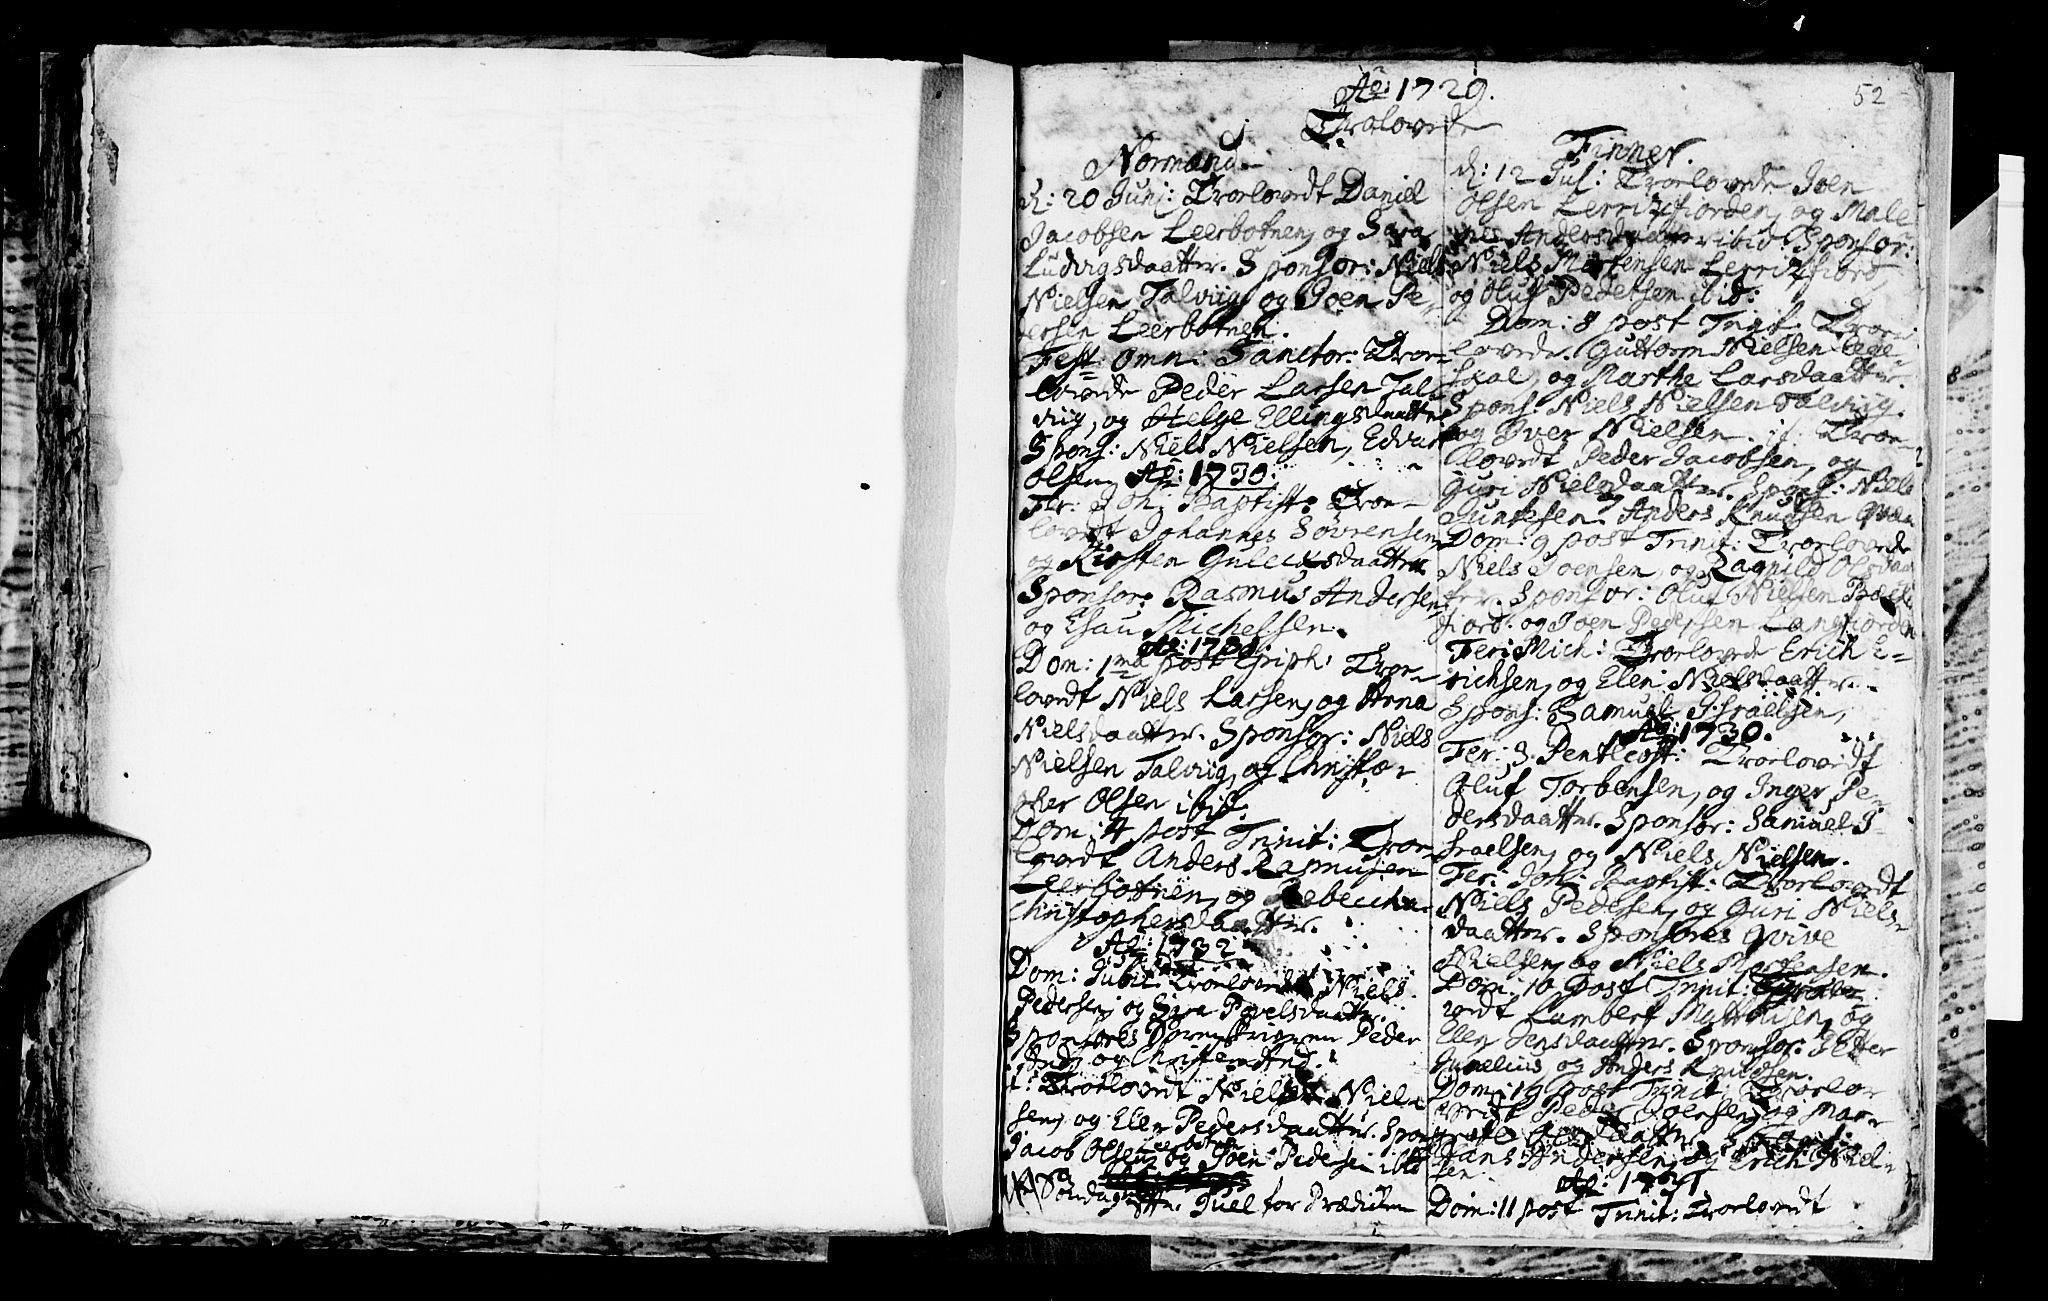 52
Aō: 1729.
Trolovede
Normænd.
d: 20 Junj: Troelovedt Daniel
Jacobsen Leerbotnen, og Sara
Ludvigsdaatter. Sponsor: Niels
Nielsen Talviig, og Joen Pe-
dersen Leerbotnen.
Fest: Omn: Sanctor: Troe-
lovede Peder Larsen Tal-
viig, og Helge Ellingsdaatter
Spons: Niels Nielsen, Edvar
Olsen Aō: 1730.
Fer: Joh: Baptist: Troe-
lovedt Johannes Sövrensen
og Kirsten Gulichsdaatter
Sponsor: Rasmus Andersen
og Esau Michelsen.
Aō: 1731.
Dom: 1ma post Epiph: Troe-
lovedt Niels Larsen, og Arna
Nielsdaatter. Sponsor: Niels
Nielsen Talviig, og Christo-
pher Olsen ibid.
Dom: 4 post Trinit: Troe-
lovedt Anders Rasmusen
Leerbotnen, og Rebeccha
Christophersdaatter.
Aō: 1732.
Dom: Jubil: Troelovede Niels
Pedersen, og Sara Povelsdaatter.
Sponsores Peder
og
Troelovedt Niels Niel-
sen, og Elen Pedersdaatter. Spons
Leerbotnen
Jacob Olsen og Joen Pedersen ibid
Söndag Juel for Prædiken
Finner.
d: 12 Jul: Troelovede Joen
Olsen Lerritzfiorden, og Male-
ne Andersdaatter ibid. Sponsor:
Niels Mortensen Lerritzfiord,
og Oluf Pedersen ibid:
Dom: 8 post Trinit. Troe-
lovede. Guttorm Nielsen
og Marthe Larsdaatter.
Spons: Niels Nielsen Talviig
og Iver Nielsen. it. Troe-
lovedt Peder Jacobsen, og
Guri Nielsdaatter. Spons: Niels
Anders Knudsen
Dom: 9 post Trinit: Troelovede
Niels Joensen, og Ragnild Olsdaat
ter. Sponsor: Oluf Nielsen
fiord. og Joen Pedersen Langfiorden
Fer: Mich: Troelovede Erich E-
richsen, og Elen Nielsdaatter.
Spons: Samuel Israelsen,
Aō: 1730.
Fer: 3. Pentecost: Troelovedt
Oluf Torbensen, og Inger Pe-
dersdaatter. Sponsor: Samuel I-
sraelsen, og Niels Nielsen.
Fer: Joh: Baptist: Troelovedt
Niels Pedersen, og Guri Niels-
daatter. Sponsores Qvive
Nielsen, og Niels Mortensen.
Dom: 10 post Trinit:
vedt Lambert Matthisen, og
Elen Jensdaatter. Sponsor: Petter
og Anders Knudsen.
Dom: 19 post Trinit: Troelo-
vedt Peder Joensen, og Mar-
Hans Andersen, og Erich Niel-
sen.
Aō: 1731
Dom: 11 post Trinit: Troelovedt